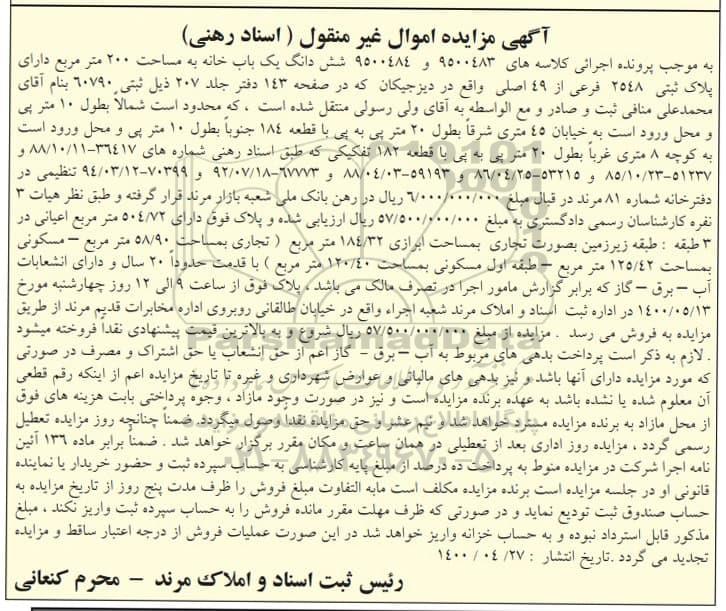 آگهی مزایده اموال غیر منقول ( اسناد رهنی)
به موجب پرونده اجرائی کلاسه های ۹۵۰۰۴۸۳ و ۹۵۰۰۴۸۴ شش دانگ یک باب خانه به مساحت ۲۰۰ متر مربع دارای
پلاک ثبتی ۲۵۴۸ فرعی از ۴۹ اصلی واقع در دیزجیکان که در صفحه ۱۴۳ دفتر جلد ۲۰۷ ذیل ثبتی ۶۰۷۹۰ بنام آقای
محمدعلی منافی ثبت و صادر و مع الواسطه به آقای ولی رسولی منتقل شده است ، که محدود است شمالاً بطول ۱۰ متر پی
و محل ورود است به خیابان ۴۵ متری شرقاً بطول ۲۰ متر پی به پی با قطعه ۱۸۴ جنوباً بطول ۱۰ متر پی و محل ورود است
به کوچه ۸ متری غرباً بطول ۲۰ متر پی به پی با قطعه ۱۸۲ تفکیکی که طبق اسناد رهنی شماره های ۳۶۴۱۷-۸۸/۱۰/۱۱ و
۵۱۲۳۷-۸۵/۱۰/۲۳ و ۵۳۲۱۵-۸۶/۰۴/۲۵ و ۵۹۱۹۳-۸۸/۰۴/۰۳ و ۶۷۷۷۳-۹۲/۰۷/۱۸ و ۷۰۳۹۹-۹۴/۰۳/۱۲ تنظیمی در
دفترخانه شماره ۸۱ مرند در قبال مبلغ ۶/۰۰۰/۰۰۰/۰۰۰ ریال در رهن بانک ملی شعبه بازار مرند قرار گرفته و طبق نظر هیات ۳
نفره کارشناسان رسمی دادگستری به مبلغ ۵۷/۵۰۰/۰۰۰/۰۰۰ ریال ارزیابی شده و پلاک فوق دارای ۵۰۴/۷۲ متر مربع اعیانی در
۳ طبقه : طبقه زیرزمین بصورت تجاری بمساحت ابرازی ۱۸۴/۳۲ متر مربع ( تجاری بمساحت ۵۸/۹۰ متر مربع – مسکونی
بمساحت ۱۲۵/۴۲ متر مربع – طبقه اول مسکونی بمساحت ۱۲۰/۴۰ متر مربع ) با قدمت حدوداً ۲۰ سال و دارای انشعابات
آب – برق – گاز که برابر گزارش مامور اجرا در تصرف مالک می باشد ، پلاک فوق از ساعت ۹ الی ۱۲ روز چهارشنبه مورخ
۱۴۰۰/۰۵/۱۳ در اداره ثبت اسناد و املاک مرند شعبه اجراء واقع در خیابان طالقانی روبروی اداره مخابرات قدیم مرند از طریق
مزایده به فروش می رسد . مزایده از مبلغ ۵۷/۵۰۰/۰۰۰/۰۰۰ ریال شروع و به بالاترین قیمت پیشنهادی نقداً فروخته میشود
. لازم به ذکر است پرداخت بدهی های مربوط به آب – برق – گاز اعم از حق انشعاب یا حق اشتراک و مصرف در صورتی
که مورد مزایده دارای آنها باشد و نیز بدهی های مالیاتی و عوارض شهرداری و غیره تا تاریخ مزایده اعم از اینکه رقم قطعی
آن معلوم شده یا نشده باشد به عهده برنده مزایده است و نیز در صورت وجود مازاد ، وجوه پرداختی بابت هزینه های فوق
از محل مازاد به برنده مزایده مسترد خواهد شد و نیم عشر و حق مزایده نقداً وصول میگردد. ضمناً چنانچه روز مزایده تعطیل
رسمی گردد ، مزایده روز اداری بعد از تعطیلی در همان ساعت و مکان مقرر برگزار خواهد شد . ضمناً برابر ماده ۱۳۶ آئین
نامه اجرا شرکت در مزایده منوط به پرداخت ده درصد از مبلغ پایه کارشناسی به حساب سپرده ثبت و حضور خریدار یا نماینده
قانونی او در جلسه مزایده است برنده مزایده مکلف است مابه التفاوت مبلغ فروش را ظرف مدت پنج روز از تاریخ مزایده به
حساب صندوق ثبت تودیع نماید و در صورتی که ظرف مهلت مقرر مانده فروش را به حساب سپرده ثبت واریز نکند ، مبلغ
مذکور قابل استرداد نبوده و به حساب خزانه واریز خواهد شد در این صورت عملیات فروش از درجه اعتبار ساقط و مزایده
تجدید می گردد .تاریخ انتشار : ۲۷/ ۰۴ / ۱۴۰۰
رئیس ثبت اسناد و املاک مرند – محرم کنعانی
ParsNamadData
۰۲۱-۸۸۳۴۹۶۷۰-۵